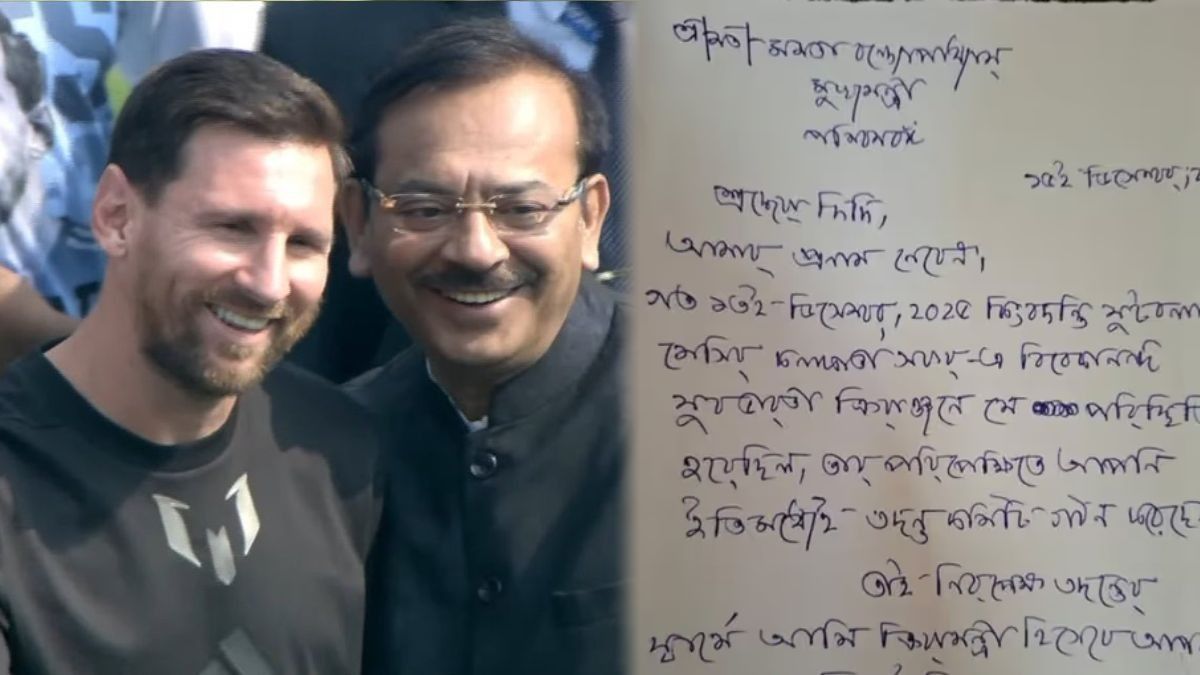 শ্রীমতী মমতা বন্দ্যোপাধ্যায়
মুখ্যমন্ত্রী
পশ্চিমবঙ্গ
১৫ই ডিসেম্বর,
শ্রদ্ধেয় দিদি,
আমার প্রনাম নেবেন,
গত ১৩ই ডিসেম্বর, ২০২৫ কিংবদন্তি
মেসির কলকাতা সফর-এ বিবেকানন্দ
যুবভারতী ক্রিড়াঙ্গনে যে
হয়েছিল, তার পরিপ্রেক্ষিতে আপনি
ইতিমধ্যেই তদন্ত কমিটি গঠন
তাই নিরপেক্ষ তদন্তের
স্বার্থে আমি ক্রিড়ামন্ত্রী হিসেবে